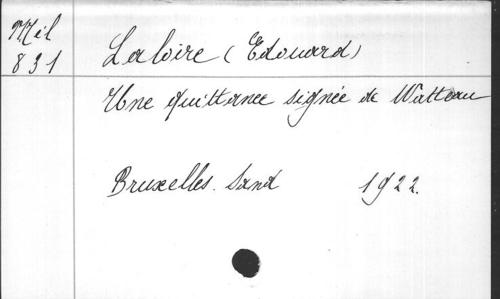 Mél
831
Laloire (Edouard)
Une quittance signée de Watteau
Bruxelles. Sand 1922.